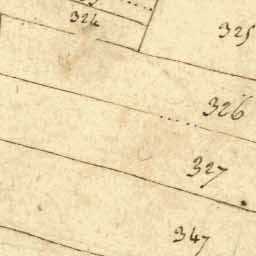 324
325
326
327
347